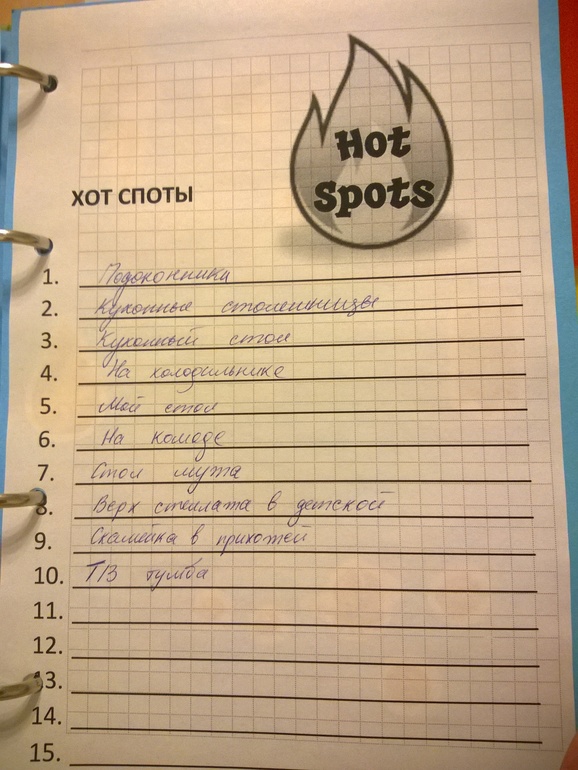 Hot
Spots
ХОТ СПОТЫ
1. Подоконники
2. Кухонные столешницы
3. Кухонный стол
4. На холодильнике
5. Мой стол
6. На комоде
7. Стол мужа
8. Верх стеллажа в детской
9. Скамейка в прихожей
10. ТВ тумба
11.
12.
13.
14.
15.